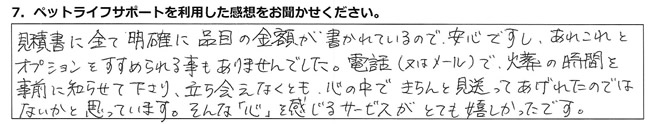 7．ペットライフサポートを利用した感想をお聞かせください。
見積書に全て明確に品目の金額が書かれているので、安心ですし、あれこれと
オプションをすすめられる事もありませんでした。電話(又はメール)で、火葬の時間を
事前に知らせて下さり、立ち会えなくとも、心の中できちんと見送ってあげれたのでは
ないかと思っています。そんな「心」を感じるサービスがとても嬉しかったです。